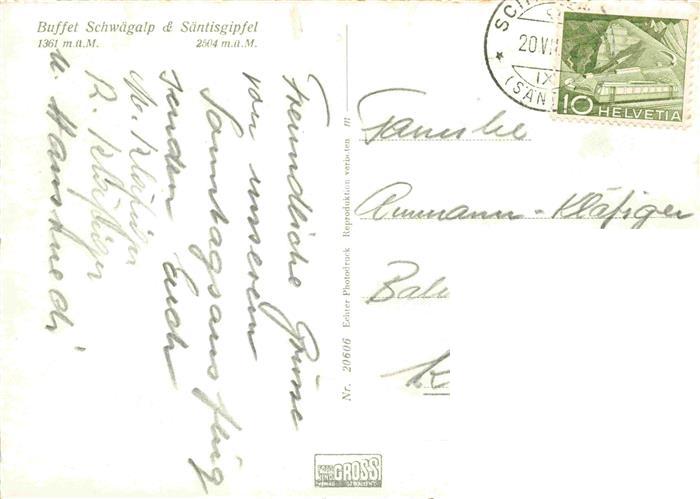 Buffet Schwägalp & Säntisgipfel
1361 m.ü.M. 2504 m.ü.M.
Freundliche Grüsse
von unserem
Sonntagsausflug
senden Euch
M. Kläfiger
R. Kläfiger
u. Hansruedi
Nr. 20606 Echter Photodruck Reproduktion verboten m
GROSS
20.VI
IX
(SÄN
10 HELVETIA
Familie
Ammann-Kläfiger